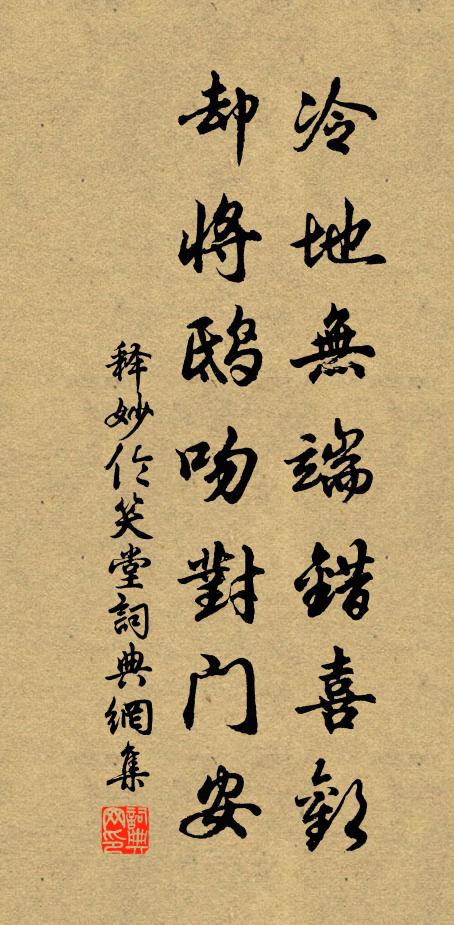 冷地無端錯喜歡
却將鴟吻對門安
释妙伦笑堂詞典網集
詞典网印